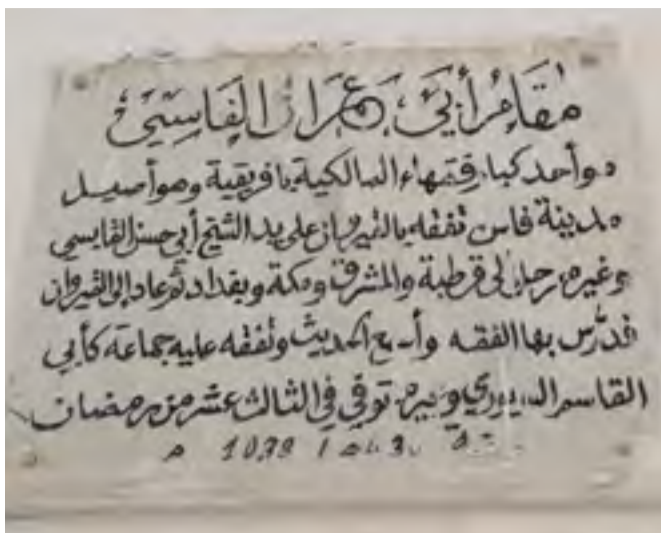 مقام أبي عمران الفاسي
هو أحد كبار فقهاء المالكية بافريقية وهو أصيل
مدينة فاس تفقه بالقيروان على يد الشيخ أبي حسن القابسي
وغيره رحل إلى قرطبة والمشرق ومكة وبغداد ثم عاد إلى القيروان
فدرس بها الفقه وأسمع الحديث وتفقه عليه جماعة كأبي
القاسم السيوري وغيره توفي في الثالث عشر من رمضان
430 هـ / 1039 م